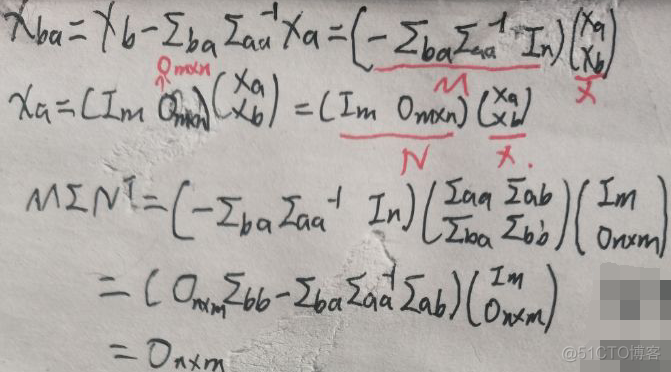 Xba = Xb - Σba Σaa⁻¹ Xa = (-Σba Σaa⁻¹ In) (Xa Xb)
M X
Omxn
Xa = (Im Omxn) (Xa Xb) = (Im Omxn) (Xa Xb)
N X.
MΣNᵀ = (-Σba Σaa⁻¹ In) (Σaa Σab Σba Σbb) (Im Onxm)
= (Onxm Σbb - Σba Σaa⁻¹ Σab) (Im Onxm)
= Onxm
@51CTO博客